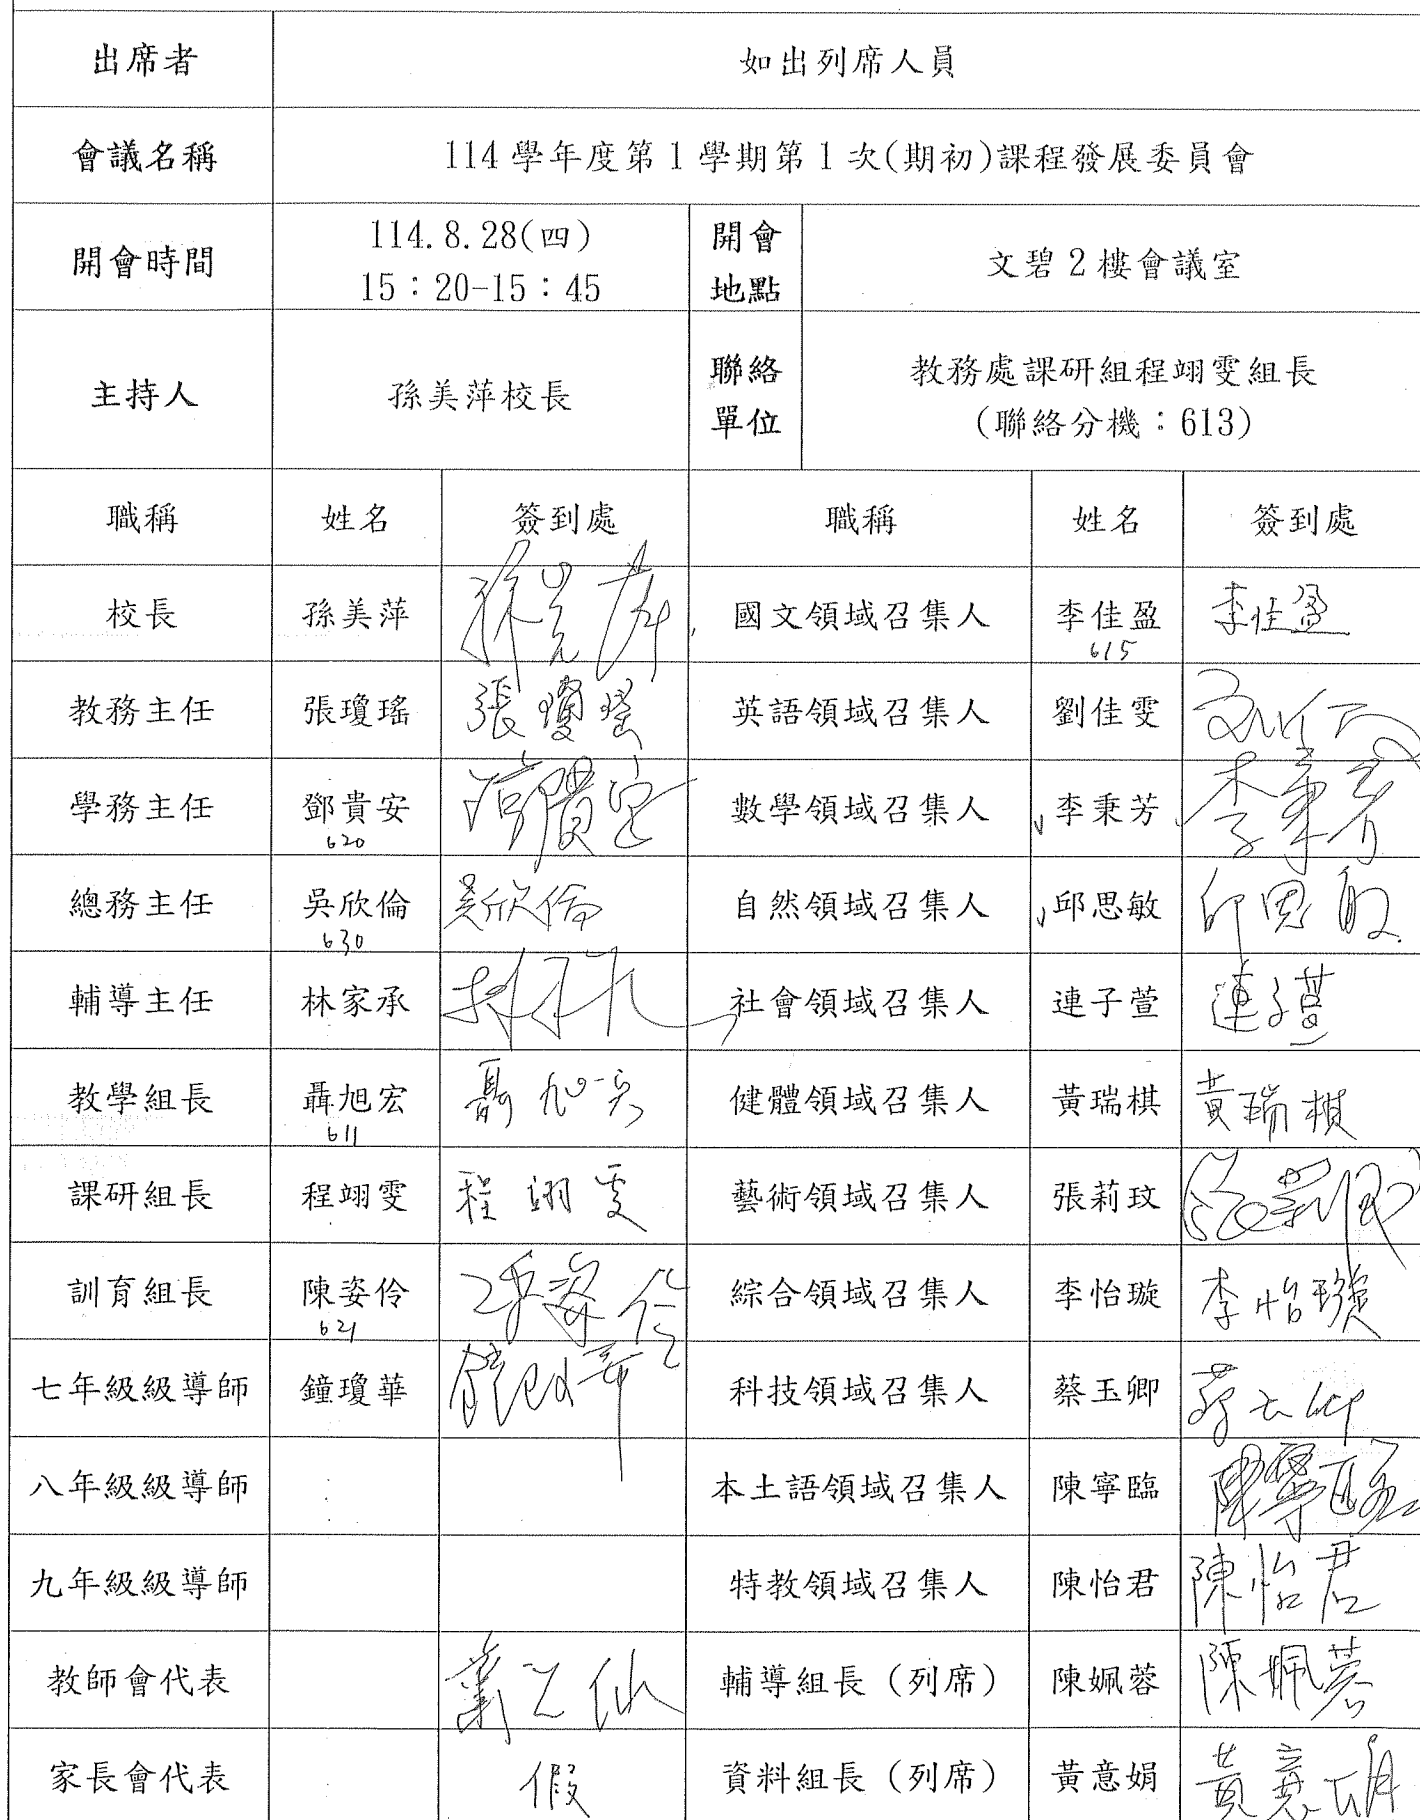 出席者 如出列席人員
會議名稱 114 學年度第 1 學期第 1 次(期初)課程發展委員會
開會時間 114.8.28(四) 15：20-15：45 開會地點 文碧 2 樓會議室
主持人 孫美萍校長 聯絡單位 教務處課研組程翊雯組長
(聯絡分機：613)
職稱 姓名 簽到處 職稱 姓名 簽到處
校長 孫美萍 孫美萍 國文領域召集人 李佳盈 李佳盈
615
教務主任 張瓊瑤 張瓊瑤 英語領域召集人 劉佳雯
學務主任 鄧貴安 鄧貴安 數學領域召集人 李秉芳 李秉芳
620
總務主任 吳欣倫 吳欣倫 自然領域召集人 邱思敏 邱思敏
630
輔導主任 林家承 社會領域召集人 連子萱 連子萱
教學組長 聶旭宏 聶旭宏 健體領域召集人 黃瑞棋 黃瑞棋
611
課研組長 程翊雯 程翊雯 藝術領域召集人 張莉玟
訓育組長 陳姿伶 陳姿伶 綜合領域召集人 李怡璇 李怡璇
621
七年級級導師 鐘瓊華 科技領域召集人 蔡玉卿 蔡玉卿
八年級級導師 本土語領域召集人 陳寧臨 陳寧臨
九年級級導師 特教領域召集人 陳怡君 陳怡君
教師會代表 輔導組長（列席） 陳姵蓉 陳姵蓉
家長會代表 假 資料組長（列席） 黃意娟 黃意娟